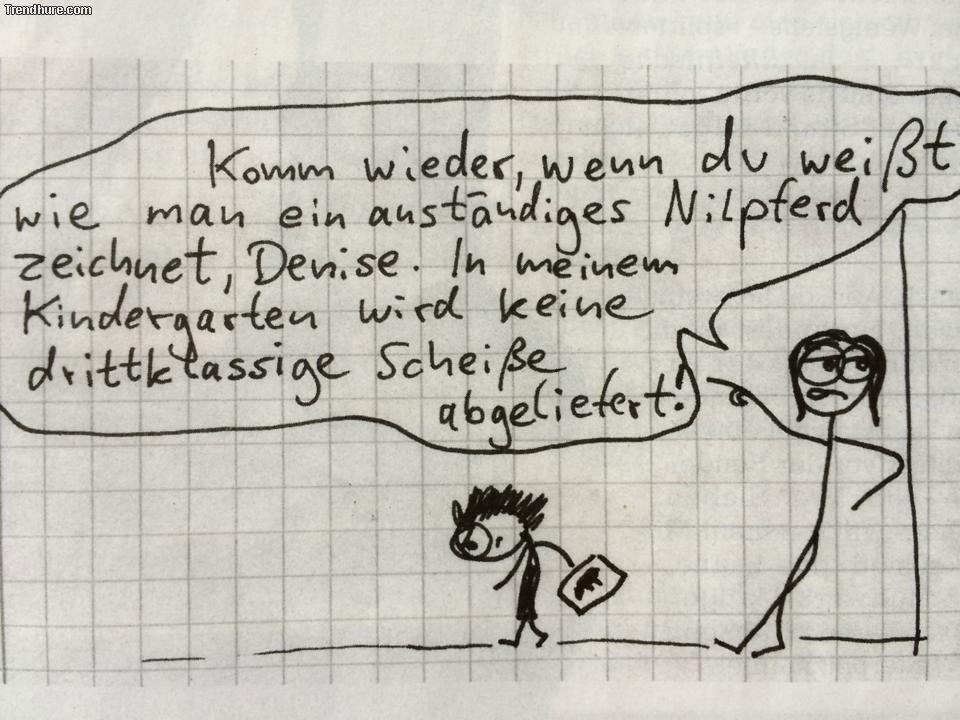 Trendhure.com
Komm wieder, wenn du weißt
wie man ein anständiges Nilpferd
zeichnet, Denise. In meinem
Kindergarten wird keine
drittklassige Scheiße
abgeliefert!